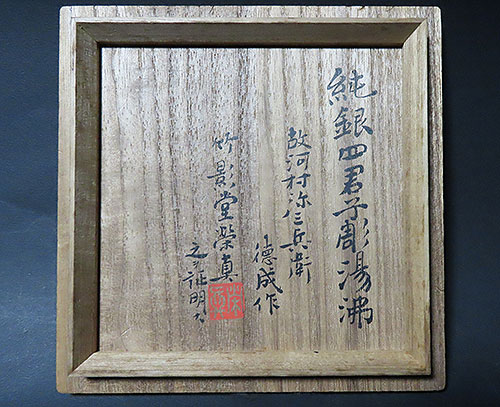 純銀四君子彫湯沸
故河村弥三兵衛
徳成作
竹影堂榮真
之証明ス